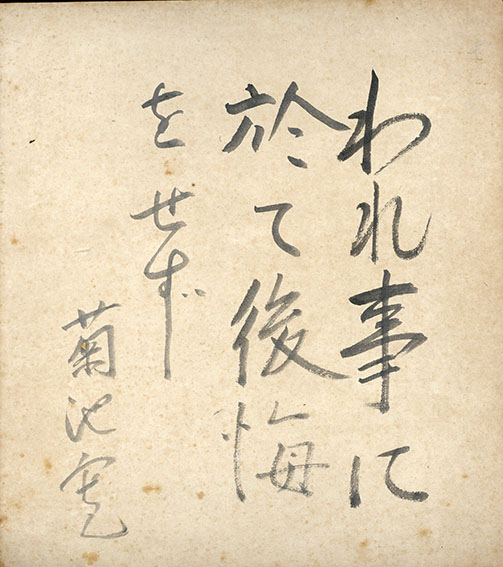 われ事に
於て後悔
を せず
菊池寛